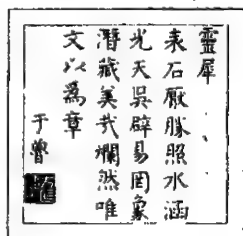 靈犀
表石厭勝照水涵
光天吳辟易罔象
潛藏美哉爛然唯
文以為章
于魯